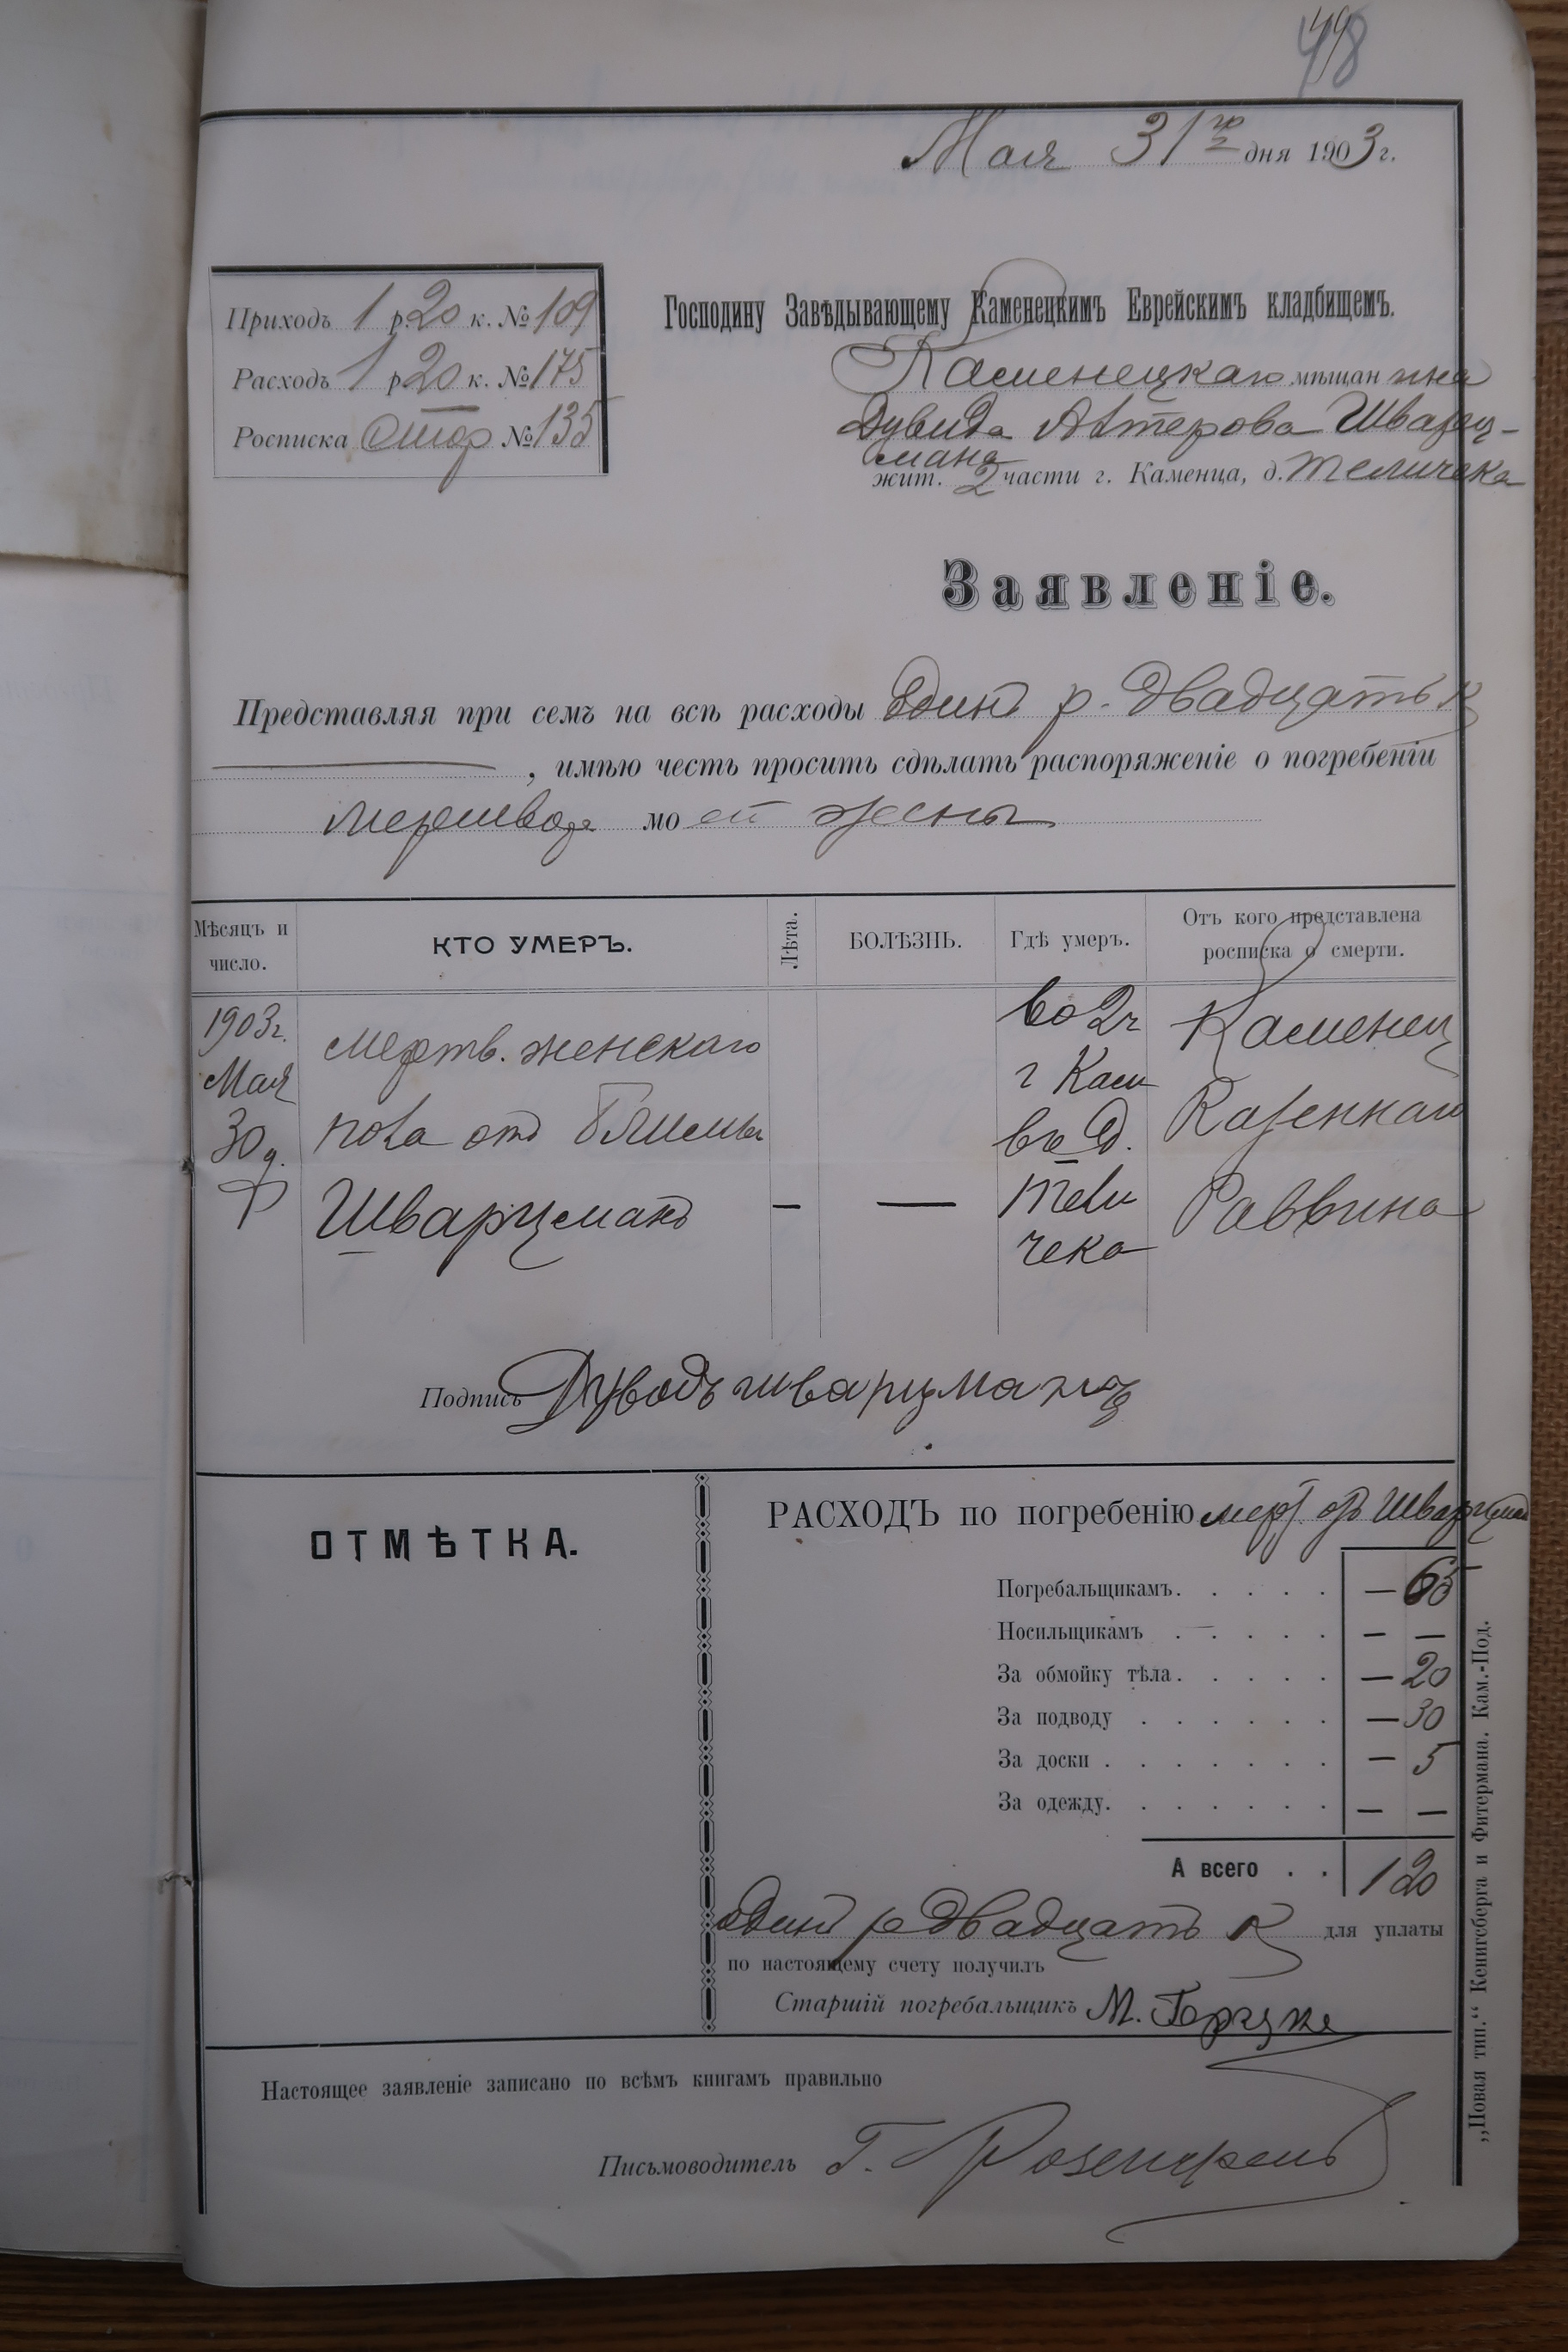 48
Мая 31го дня 1903 г.
Приходъ 1 р. 20 к. № 109
Расходъ 1 р 20 к. № 175
Росписка № 135
Господину Завѣдывающему Каменецкимъ Еврейскимъ кладбищемъ.
Каменецкаго мѣщанина
Дувида Алтерова Шварц-
мана
жит. 2 части г. Каменца, д. Теличека
Заявленіе.
Представляя при семъ на всѣ расходы один р. двадцать к
, имѣю честь просить сдѣлать распоряженіе о погребеніи
мо ей жены
Мѣсяцъ и число.
КТО УМЕРЪ.
Лѣта.
БОЛѢЗНЬ.
Гдѣ умеръ.
Отъ кого представлена росписка о смерти.
1903г. Мая 30 д.
мертв. женскаго
пола от Блимы
Шварцман
—
—
во 2 ч
г Кам
въ д.
Тели
чека
Каменец
Казеннаго
Раввина
Подпись Дуводъ шварцман
ОТМѢТКА.
РАСХОДЪ по погребенію мерт от Шварцман
Погребальщикамъ. — 65
Носильщикамъ — —
За обмойку тѣла. — 20
За подводу — 30
За доски — 5
За одежду. — —
А всего 1 20
один р двадцать к для уплаты
по настоящему счету получилъ
Старшій погребальщикъ М.
Настоящее заявленіе записано по всѣмъ книгамъ правильно
Письмоводитель Г. Розенфельд
„Новая тип.“ Кенигсберга и Фитермана. Кам.-Под.